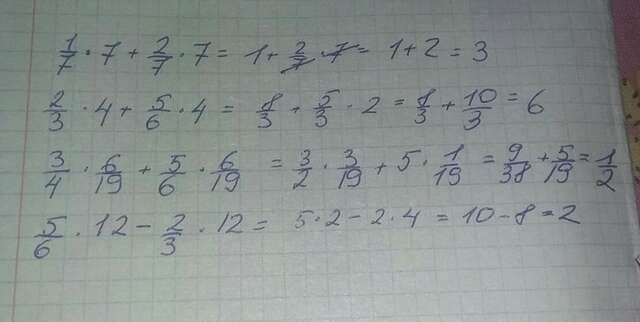 1/7 · 7 + 2/7 · 7 = 1 + 2/7 · 7 = 1 + 2 = 3
2/3 · 4 + 5/6 · 4 = 8/3 + 5/3 · 2 = 8/3 + 10/3 = 6
3/4 · 6/19 + 5/6 · 6/19 = 3/2 · 3/19 + 5 · 1/19 = 9/38 + 5/19 = 1/2
5/6 · 12 - 2/3 · 12 = 5·2 - 2·4 = 10 - 8 = 2